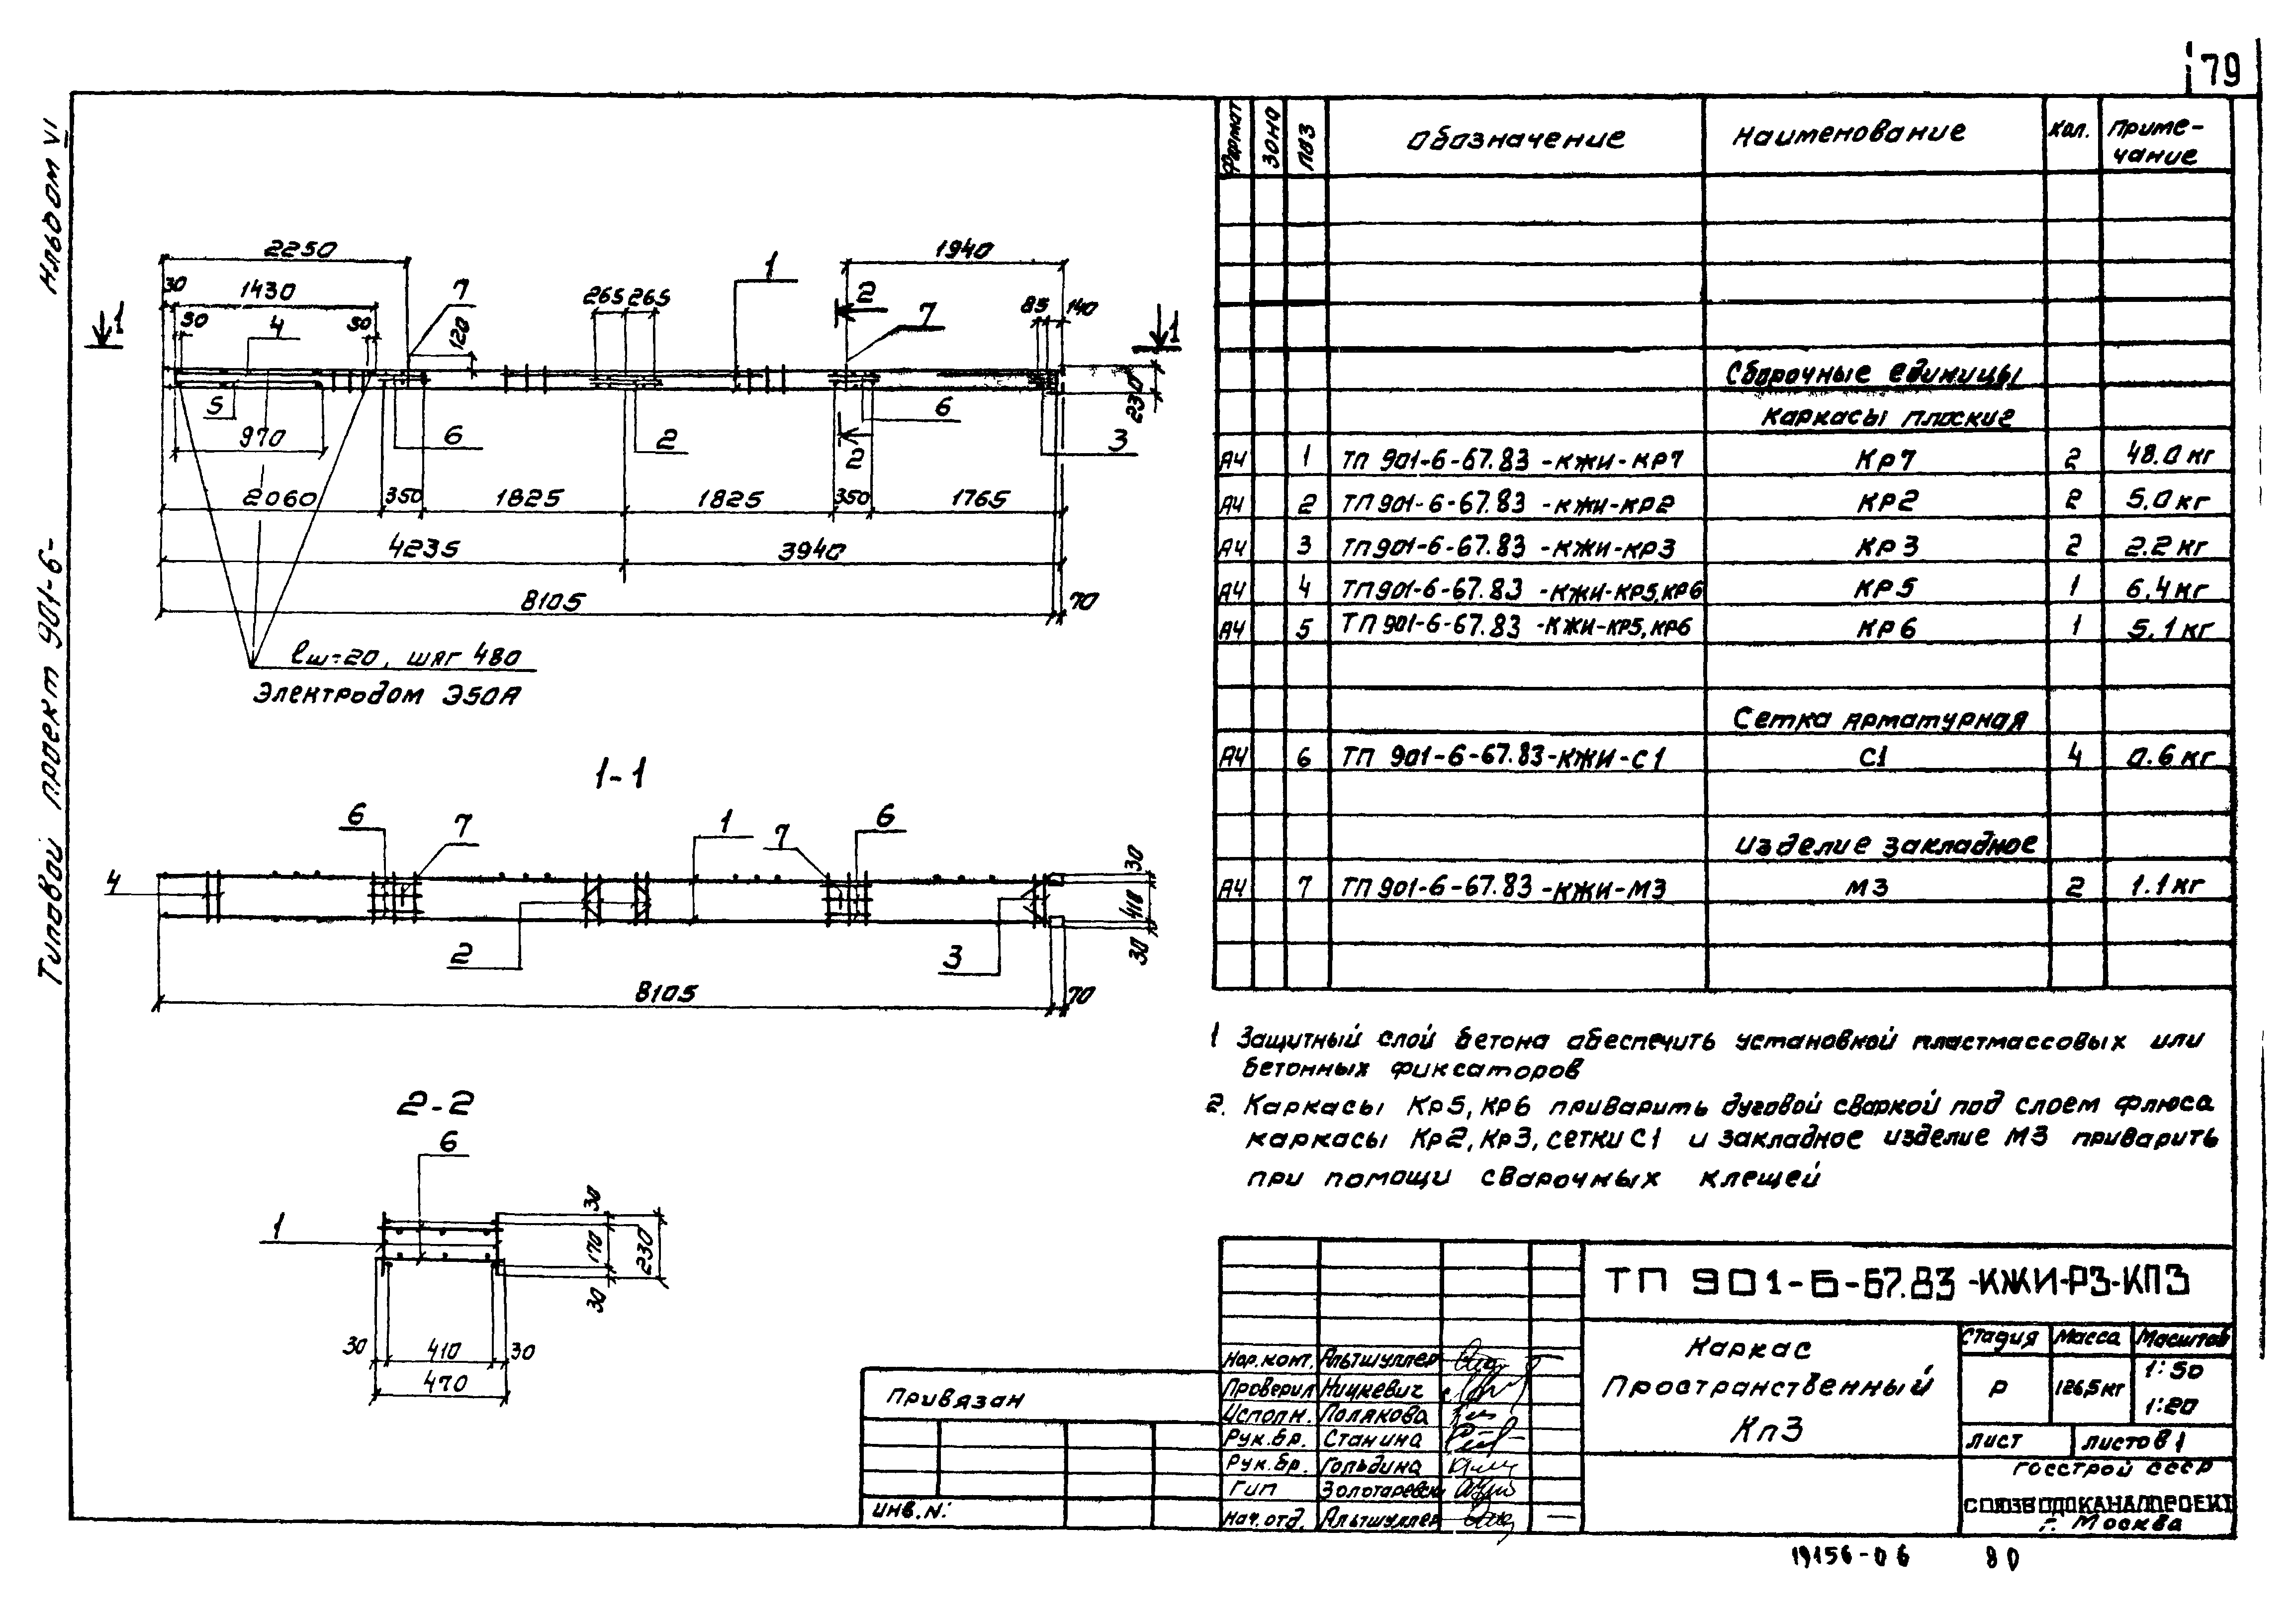 79
Альбом VI
Типовой проект 901-6-
2250
1940
30
1430
7
1
265 265
2
7
85
140
1
50
4
50
120
1
5
6
2
6
3
230
970
2
2060
350
1825
1825
350
1765
4235
3940
8105
70
ℓш=20, шаг 480
Электродом Э50А
1-1
6
7
1
7
6
4
30
410
30
2
3
8105
70
2-2
6
1
30
170
230
30
30
410
30
470
Формат
Зона
Поз
Обозначение
Наименование
Кол.
Приме-
чание
Сборочные единицы
Каркасы плоские
А4 1 ТП 901-6-67.83 -КЖИ-КР7 Кр7 2 48.0 кг
А4 2 ТП 901-6-67.83 -КЖИ-КР2 КР2 2 5.0 кг
А4 3 ТП 901-6-67.83 -КЖИ-КР3 КР3 2 2.2 кг
А4 4 ТП 901-6-67.83 -КЖИ-КР5,КР6 КР5 1 6.4 кг
А4 5 ТП 901-6-67.83 -КЖИ-КР5,КР6 КР6 1 5.1 кг
Сетка арматурная
А4 6 ТП 901-6-67.83-КЖИ-С1 С1 4 0.6 кг
Изделие закладное
А4 7 ТП 901-6-67.83-КЖИ-М3 М3 2 1.1 кг
1 Защитный слой бетона обеспечить установкой пластмассовых или
бетонных фиксаторов
2. Каркасы Кр5, Кр6 приварить дуговой сваркой под слоем флюса
каркасы Кр2, Кр3, сетки С1 и закладное изделие М3 приварить
при помощи сварочных клещей
ТП 901-6-67.83 -КЖИ-Р3-КП3
Каркас
Пространственный
Кп3
Стадия Масса Масштаб
Р 126,5 кг 1:50
1:20
Лист Листов 1
Госстрой СССР
СОЮЗВОДОКАНАЛПРОЕКТ
г. Москва
Нор.конт. Альтшуллер
Проверил Ницкевич
Исполн. Полякова
Рук.бр. Станина
Рук.бр. Гольдина
Гип Золотаревск
Нач.отд. Альтшуллер
Привязан
Инв.N:
19156-06 80